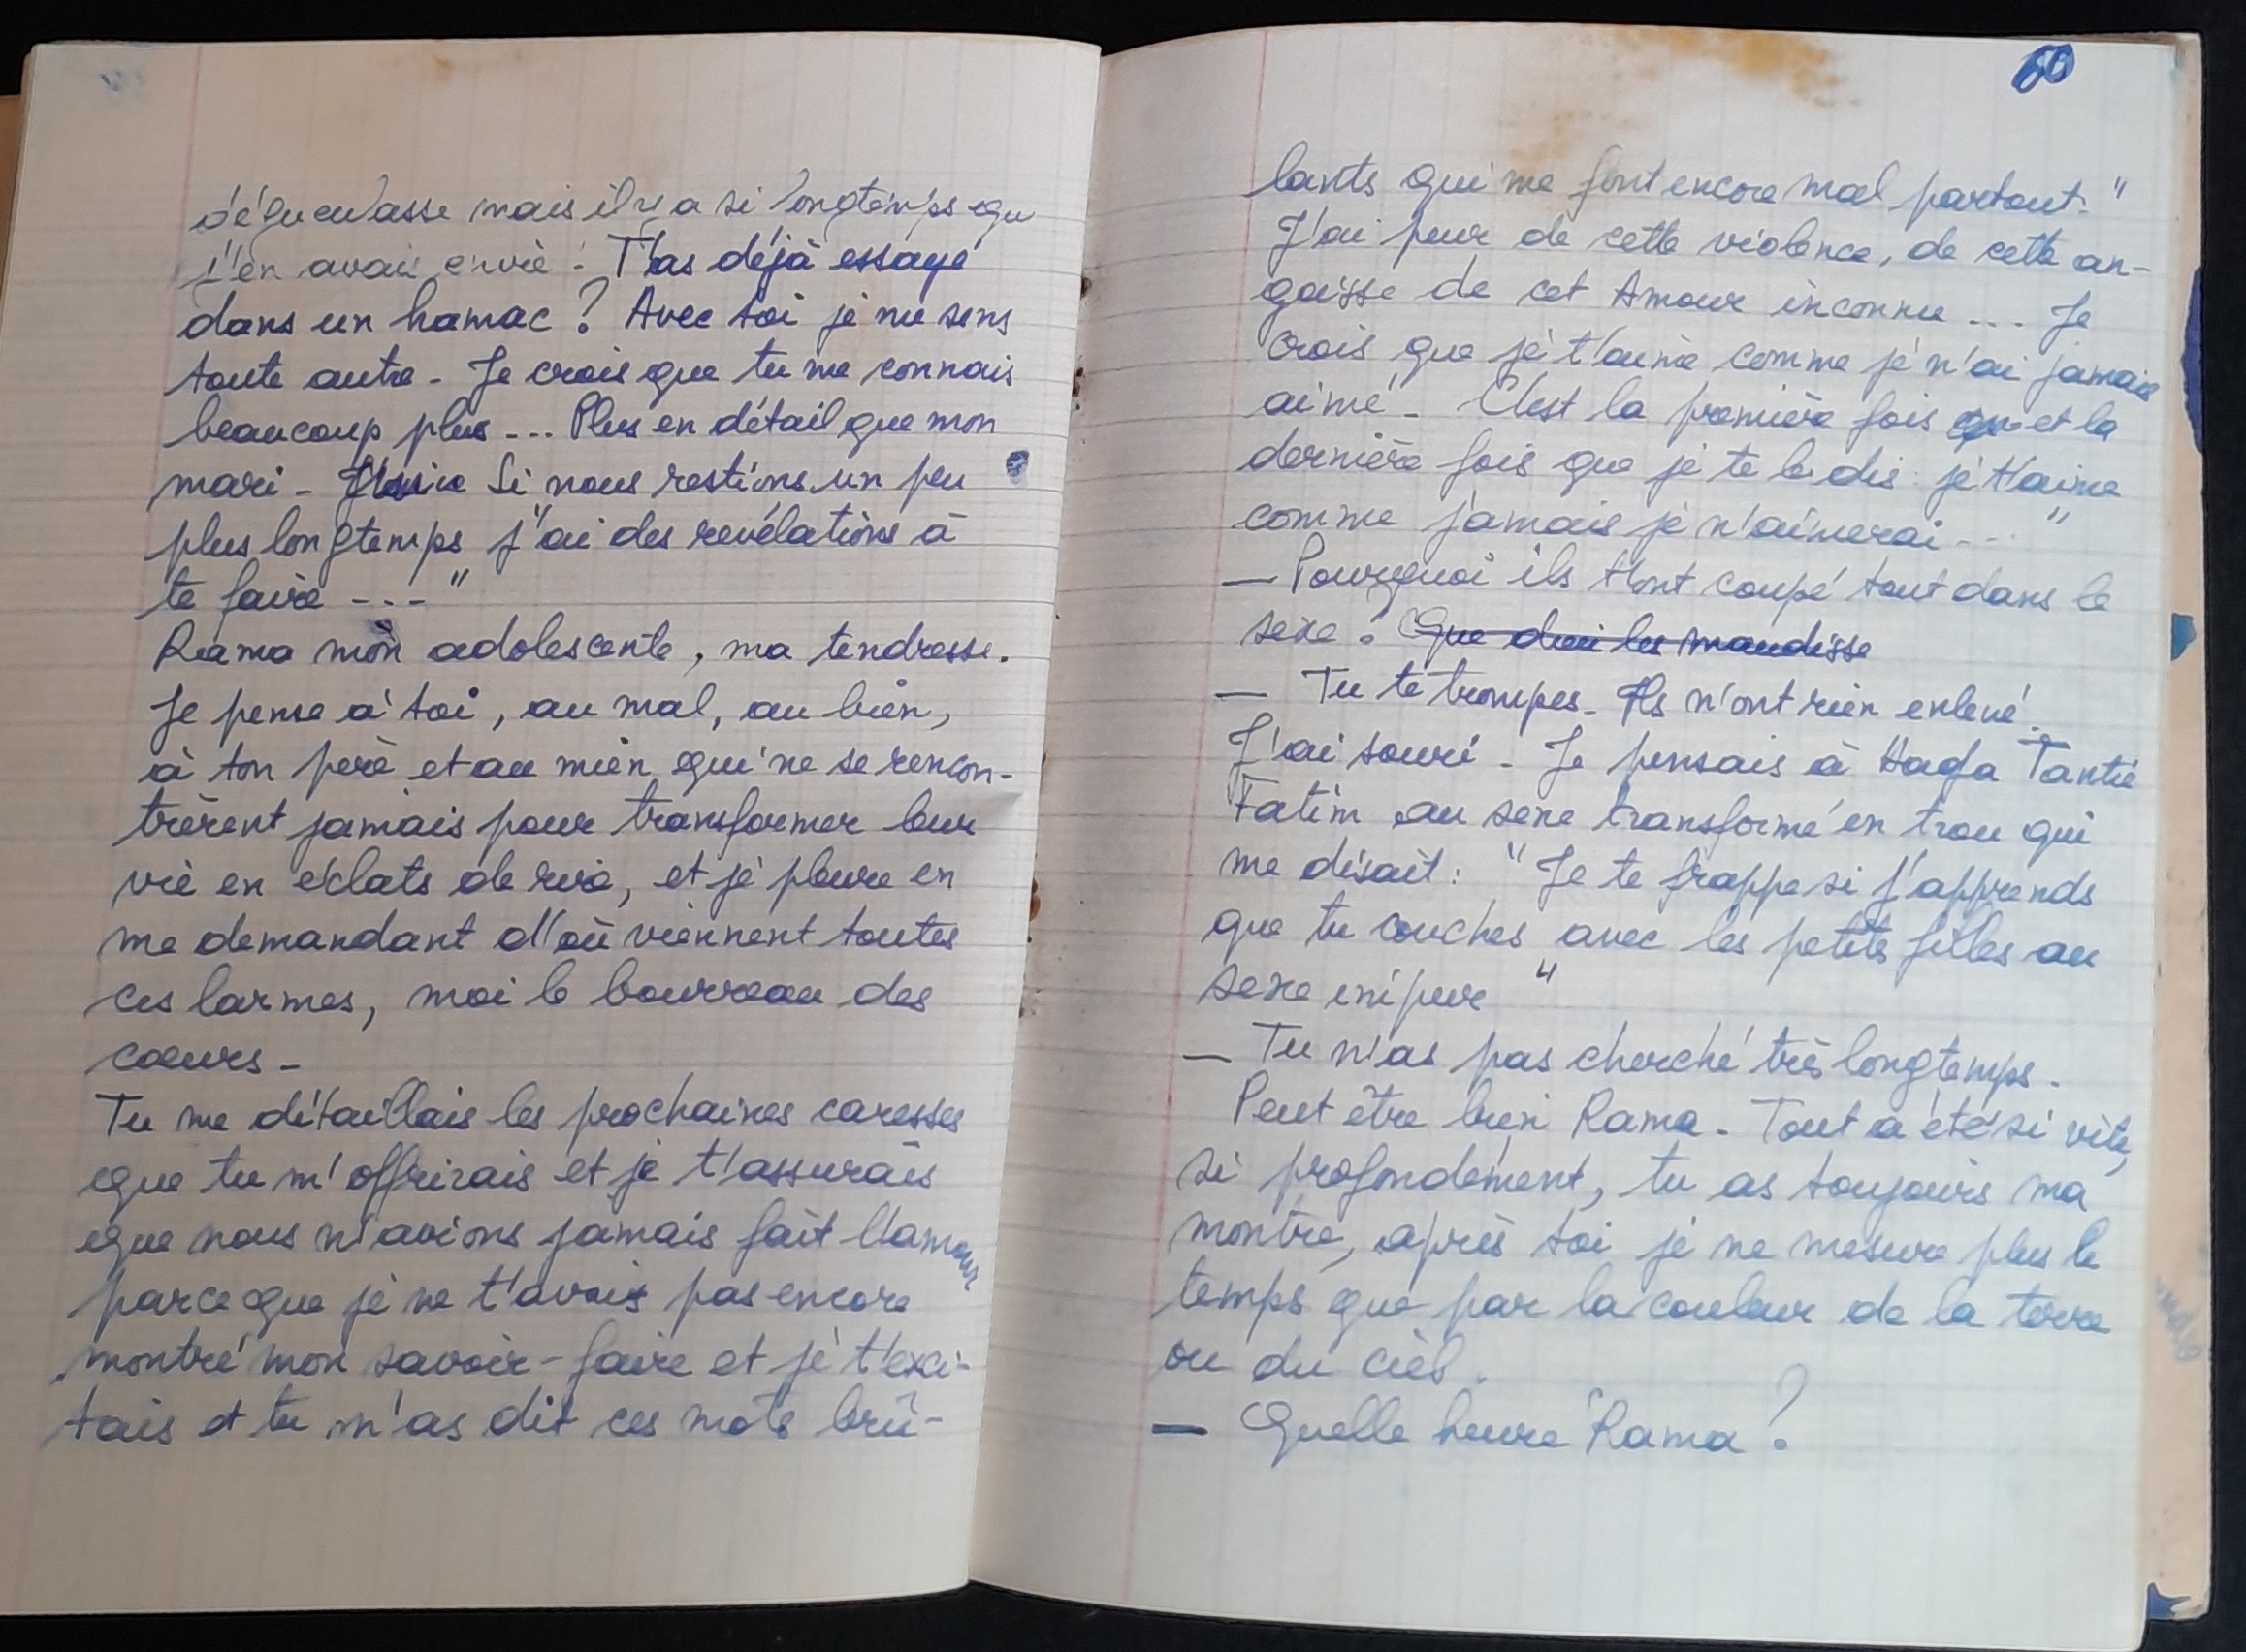 dégueulasse mais il y a si longtemps que
j'en avais envie. T'as déjà essayé
dans un hamac ? Avec toi je me sens
toute autre - Je crois que tu me connais
beaucoup plus --- Plus en détail que mon
mari - Si nous restions un peu
plus longtemps j'ai des révélations à
te faire ---"
Rama mon adolescente, ma tendresse.
Je pense à toi, au mal, au bien,
à ton père et au mien qui ne se rencon-
trèrent jamais pour transformer leur
vie en éclats de rire, et je pleure en
me demandant d'où viennent toutes
ces larmes, moi le bourreau des
coeurs -
Tu me détaillais les prochaines caresses
que tu m'offrirais et je t'assurais
que nous n'avions jamais fait l'amour
parce que je ne t'avais pas encore
montré mon savoir-faire et je t'exci-
tais et tu m'as dit ces mots brû-
60
lants qui me font encore mal partout."
J'ai peur de cette violence, de cette an-
goisse de cet Amour inconnu --- Je
crois que je t'aime comme je n'ai jamais
aimé - C'est la première fois et la
dernière fois que je te le dis : je t'aime
comme jamais je n'aimerai --- "
— Pourquoi ils t'ont coupé tout dans le
sexe ? Que dieu les maudisse
— Tu te trompes - Ils n'ont rien enlevé.
J'ai souri - Je pensais à Hada Tantie
Fatim au sexe transformé en trou qui
me disait : "Je te frappe si j'apprends
que tu couches avec les petites filles au
sexe impur "
— Tu n'as pas cherché très longtemps.
Peut être bien Rama - Tout a été si vite,
si profondément, tu as toujours ma
montre, après toi je ne mesure plus le
temps que par la couleur de la terre
ou du ciel.
— Quelle heure Rama ?